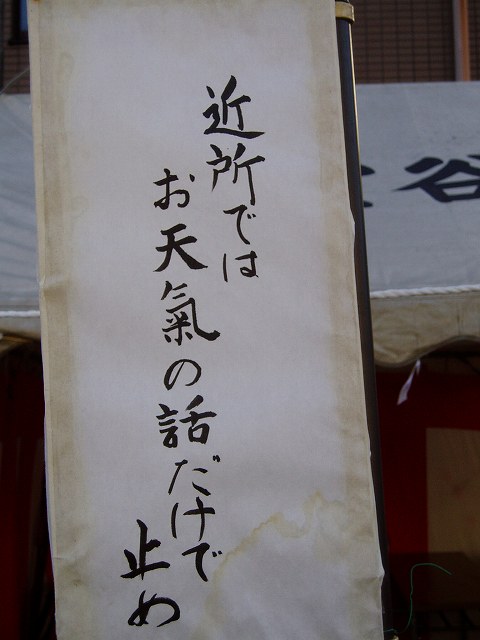 近所では
お天氣の話だけで
止め
谷